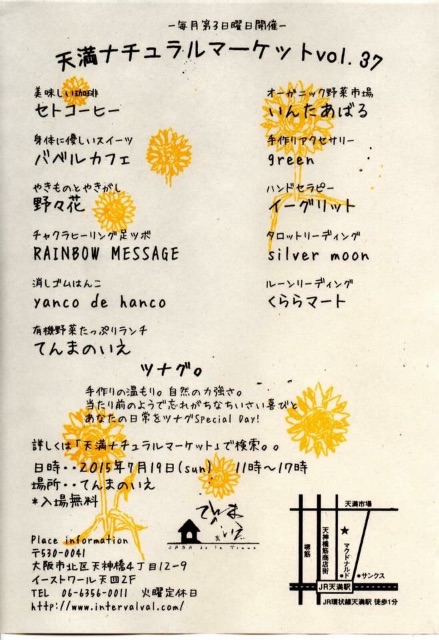 －毎月第3日曜日開催－
天満ナチュラルマーケットvol.37
美味しい珈琲
セトコーヒー
身体に優しいスイーツ
バベルカフェ
やきものとやきがし
野々花
チャクラヒーリング足ツボ
RAINBOW MESSAGE
消しゴムはんこ
yanco de hanco
有機野菜たっぷりランチ
てんまのいえ
オーガニック野菜市場
いんたあばる
手作りアクセサリー
green
ハンドセラピー
イーグリット
タロットリーディング
silver moon
ルーンリーディング
くららマート
ツナグ。
手作りの温もり。自然の力強さ。
当たり前のようで忘れがちなちいさい喜びと
あなたの日常をツナグSpecial Day!
詳しくは「天満ナチュラルマーケット」で検索。。
日時・・2015年7月19日(sun) 11時〜17時
場所・・てんまのいえ
*入場無料
てんま
のいえ
Place information
〒530-0041
大阪市北区天神橋4丁目12-9
イーストワール天四2F
TEL 06-6356-0011 火曜定休日
http://www.intervalval.com/
天満市場
堺筋
天神橋筋商店街
★
マクドナルド
サンクス
JR天満駅
JR環状線天満駅 徒歩1分